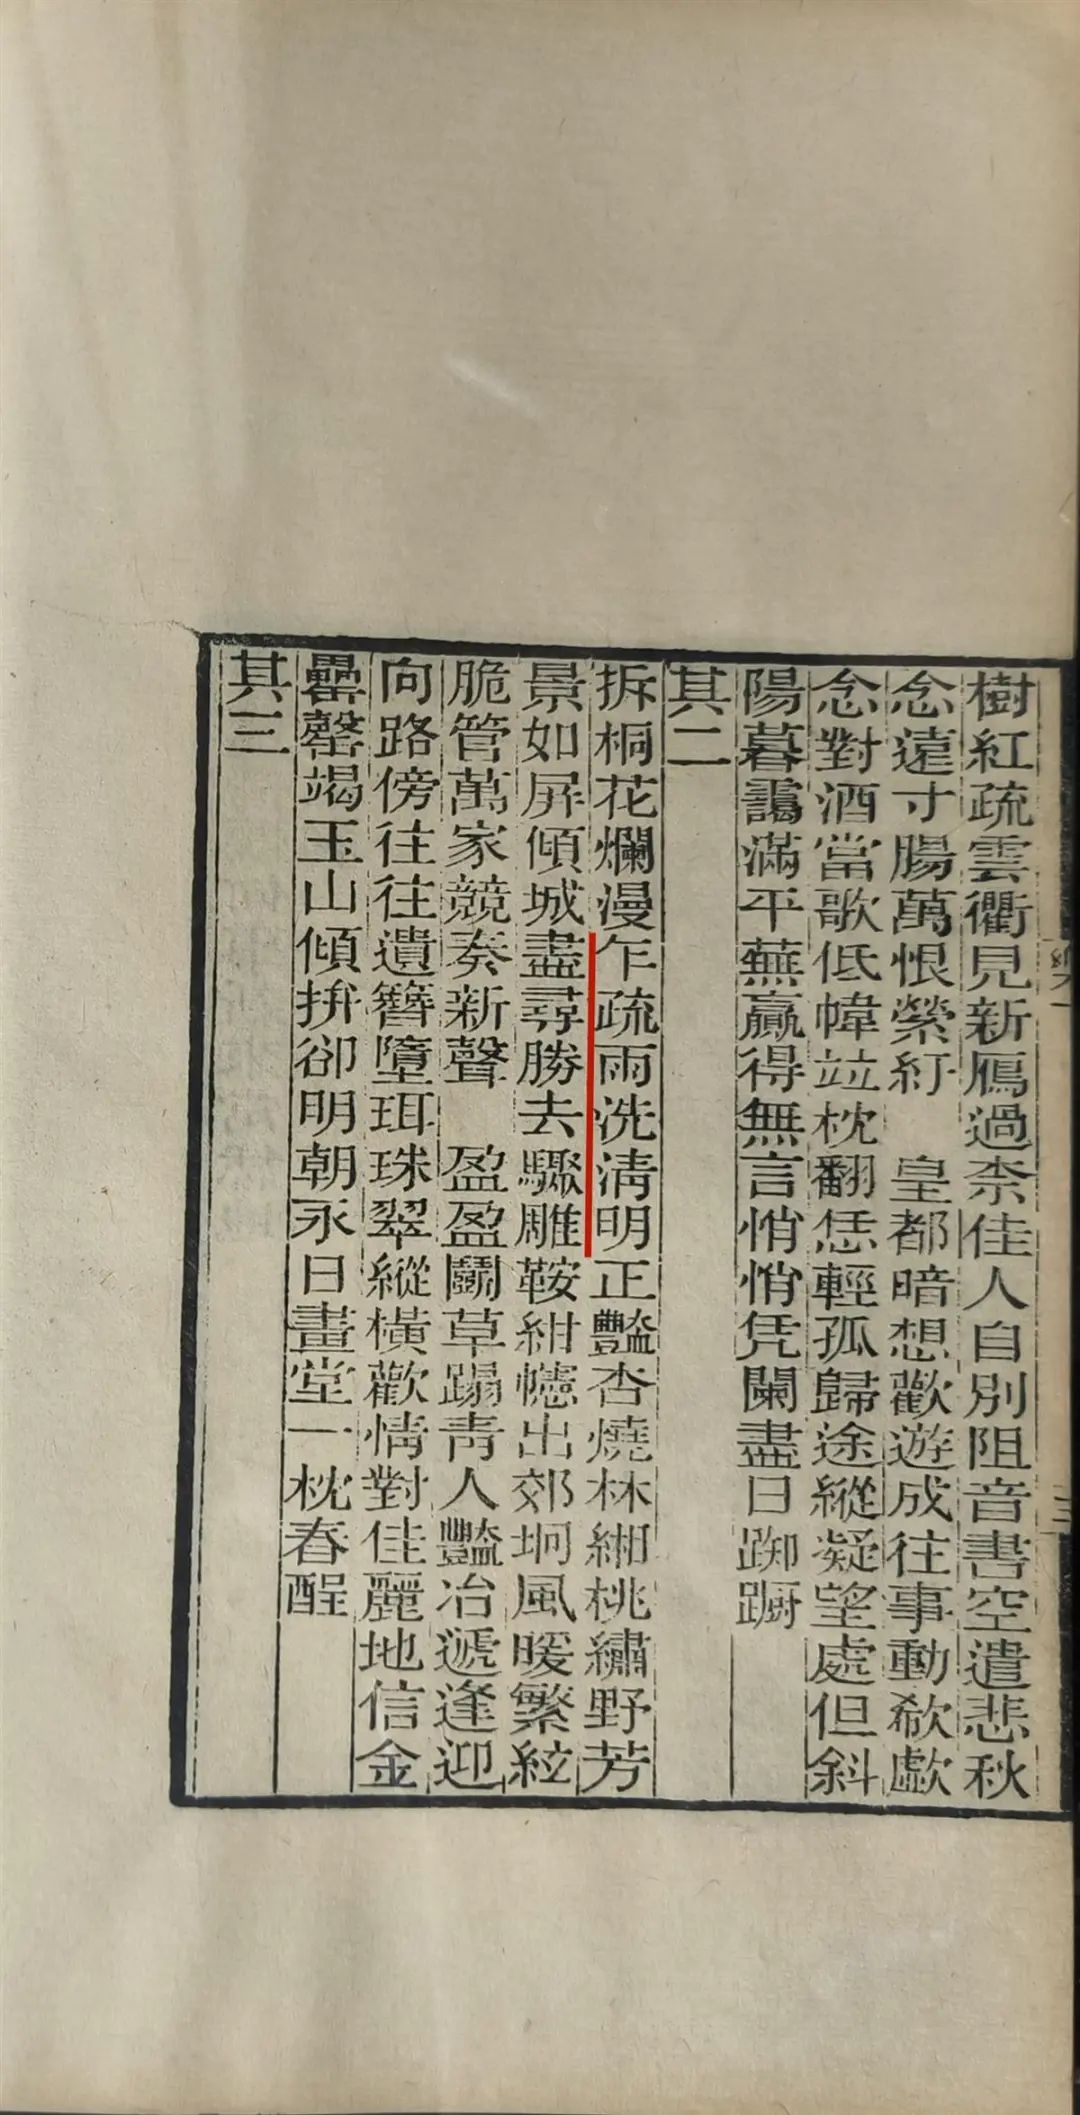 樹紅疏雲衢見新鴈過柰佳人自別阻音書空遣悲秋
念遠寸腸萬恨縈紆　皇都暗想歡遊成往事動欷歔
念對酒當歌低幃竝枕翻恁輕孤歸途縱凝望處但斜
陽暮靄滿平蕪贏得無言悄悄凭闌盡日踟蹰
其二
拆桐花爛漫乍疏雨洗清明正豔杏燒林緗桃繡野芳
景如屏傾城盡尋勝去驟雕鞍紺幰出郊坰風暖繁絃
脆管萬家競奏新聲　盈盈鬭草蹋青人豔冶遞逢迎
向路傍往往遺簪墮珥珠翠縱橫歡情對佳麗地信金
罍罄竭玉山傾拚卻明朝永日畫堂一枕春酲
其三